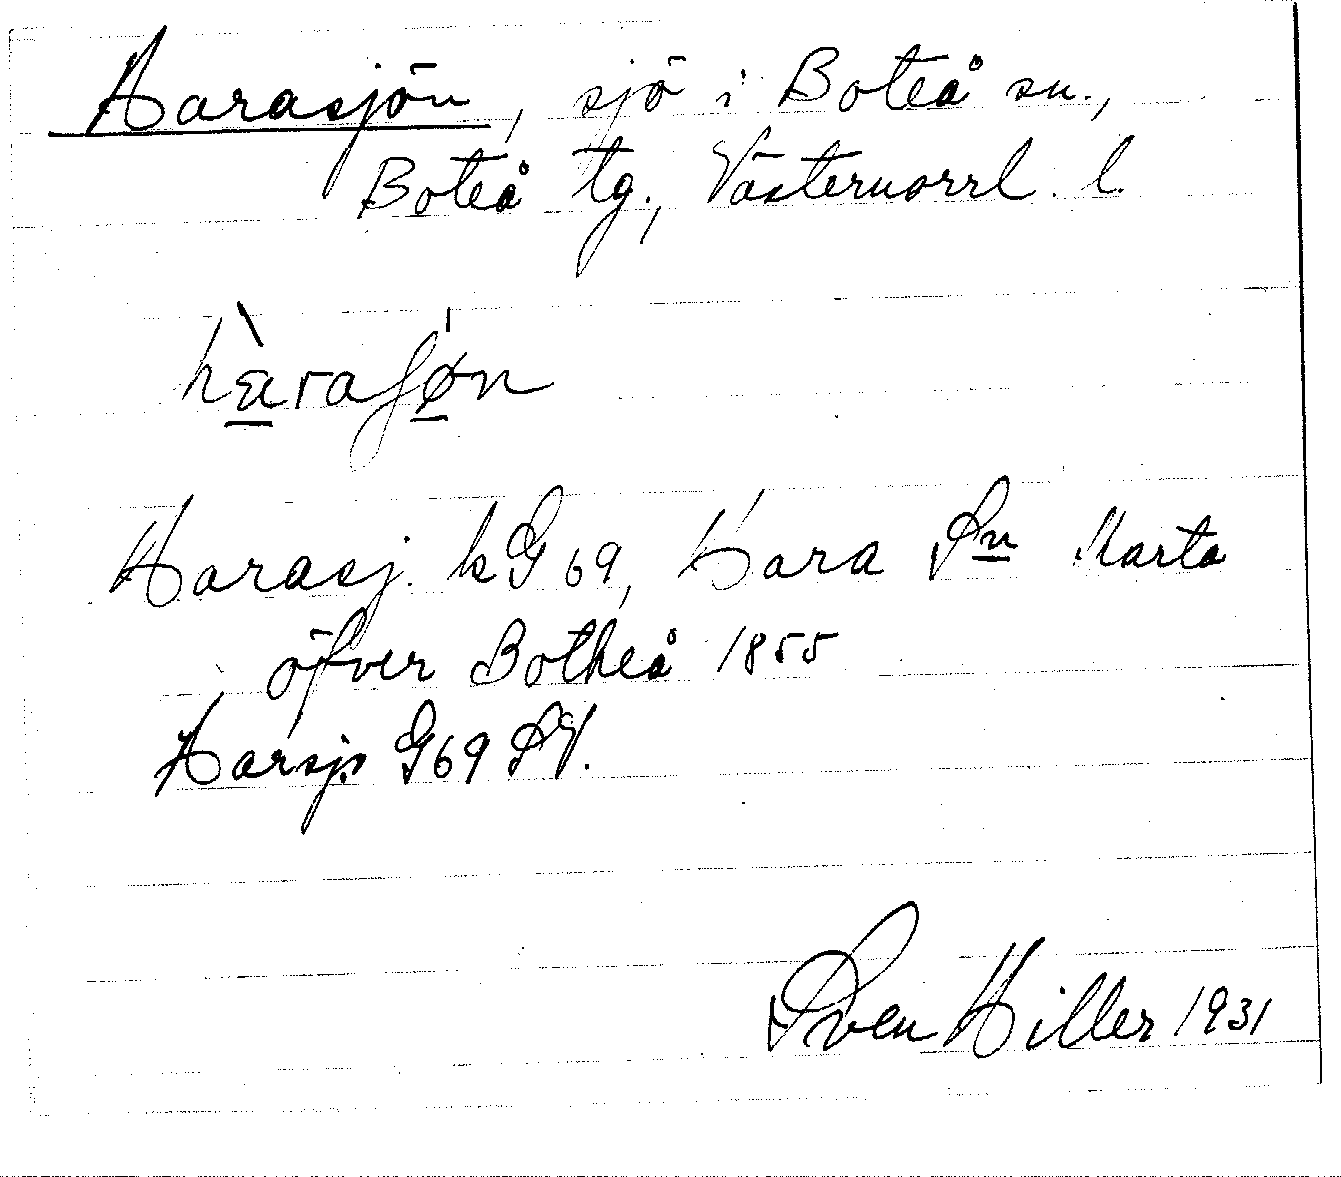 Harasjön, sjö i Boteå sn.,
Boteå tg., Västernorrl. l.
hàraʃøn
Harasj. kG 69, Hara Sn Marta
öfver Botheå 1855
Harsjn G69 SV.
Sven Hiller 1931